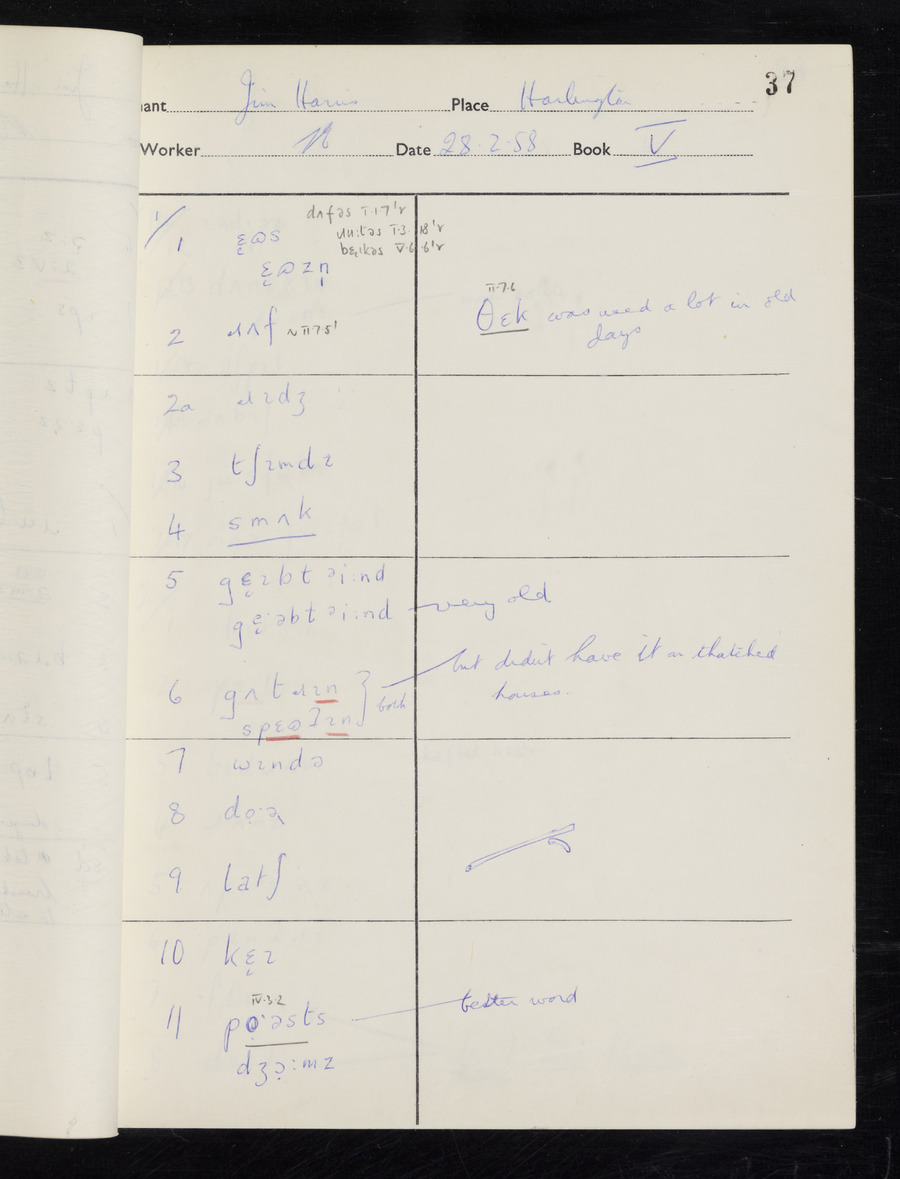 37
ant Jim Harris Place Harlington
Worker Date 28.2.58 Book V
1/
1 ɛ̣ɷs
ɛ̣ɷzn̩
dʌfəs I.1.7'r
ɹuːtəs I.3.18'r
V.6.6'r
2 ɹʌf ~ II 7.5'
II.7.6
θɛk was used a lot in old
days
2a ɹɪdʒ
3 tʃɪmdɪ
4 smʌk
5 gɛ̣ɪbt əiːnd
gɛ̣ˑəbt əiːnd very old
6 gʌtɹɪn
both
but didn't have it on thatched
houses.
7 wɪndə
8
9 latʃ
10 kɛ̣ɪ
IV.3.2
11 pọˑəsts better word
dʒə̣ːmz